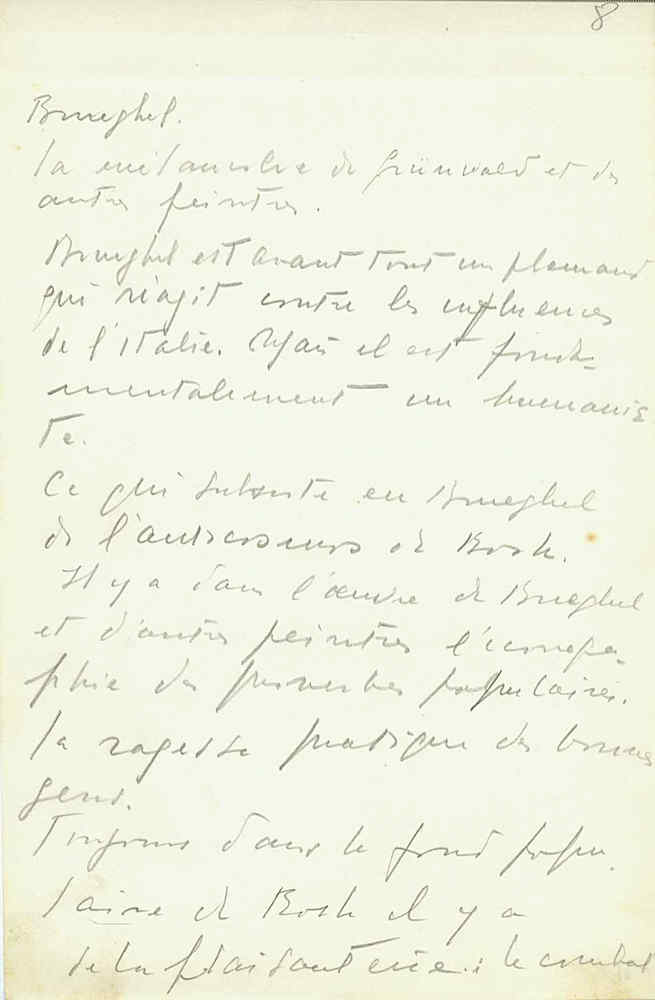 8
Brueghel.
la mélancolie de Grünwald et des
autres peintres.
Brueghel est avant tout un flamand
qui réagit contre les influences
de l'Italie. Mais il est fonda-
mentalement un humanis
te.
Ce qui subsiste en Brueghel
de l' de Bosh.
Il y a dans l'œuvre de Brueghel
et d'autres peintres l'iconogra-
phie des proverbes populaires.
la sagesse pratique des bonnes
gens.
Toujours dans le fond popu-
laire de Bosh il y a
de la plaisanterie : le combat